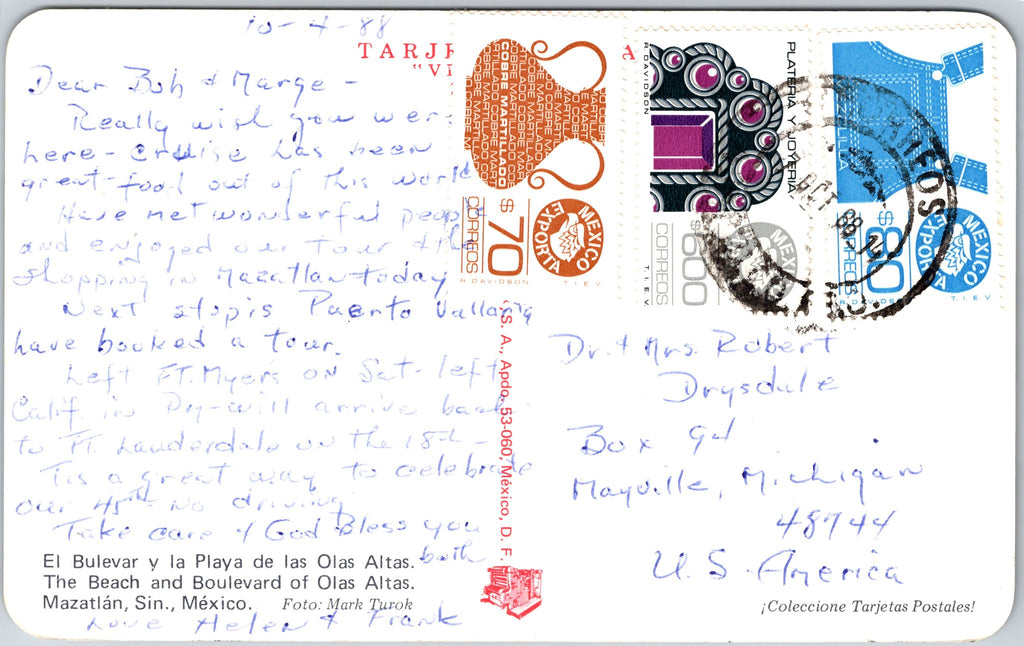 10-4-88
TARJE
"VI
A
Dear Bob & Marge -
Really wish you were
here - cruise has been
great - food out of this world
Have met wonderful people
and enjoyed our tour & the
shopping in Mazatlan today
Next stop is Puerto Vallarta
have booked a tour.
Left Ft. Myers on Sat - left
Calif. in will arrive back
to Ft. Lauderdale on the 18th -
Tis a great way to celebrate
our 45th - No driving
Take care & God Bless you
both
Love Helen & Frank
El Bulevar y la Playa de las Olas Altas.
The Beach and Boulevard of Olas Altas.
Mazatlán, Sin., México. Foto: Mark Turok
S. A., Apdo. 53-060, México, D. F.
COBRE MARTILLADO
$70
CORREOS
MEXICO EXPORTA
R DAVIDSON
T.I.E.V
R DAVIDSON
PLATERIA Y JOYERIA
$600
CORREOS
MEXICO
T.I.E.V
$80
CORREOS
MEXICO EXPORTA
R DAVIDSO
T.I.E.V
OCT 88
Dr. & Mrs. Robert
Drysdale
Box 94
Mayville, Michigan
48744
U.S. America
¡Coleccione Tarjetas Postales!